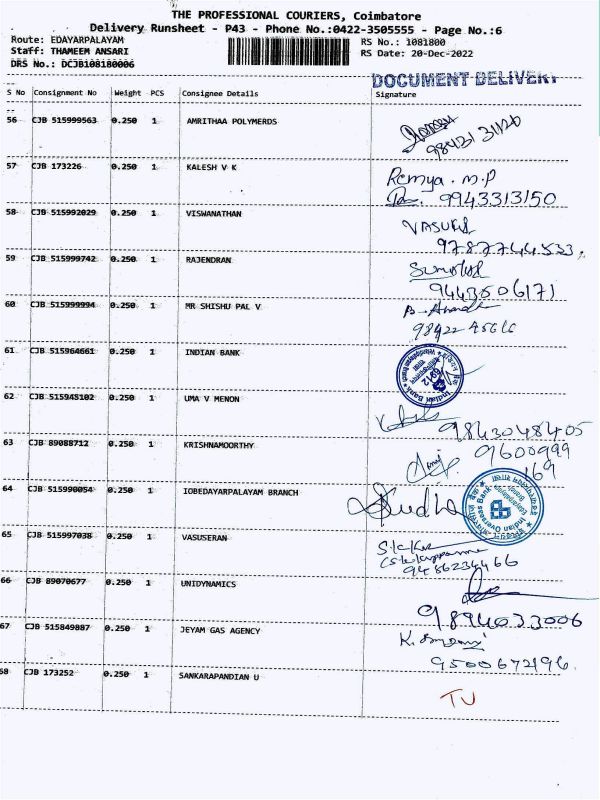 THE PROFESSIONAL COURIERS, Coimbatore
Delivery Runsheet - P43 - Phone No.:0422-3505555 - Page No.:6
Route: EDAYARPALAYAM
Staff: THAMEEM ANSARI
DRS No.: DCJB108180006
RS No.: 1081800
RS Date: 20-Dec-2022
DOCUMENT DELIVERY
S No Consignment No Weight PCS Consignee Details Signature
56 CJB 515999563 0.250 1 AMRITHAA POLYMERDS
57 CJB 173226 0.250 1 KALESH V K Remya. M.P
9943313150
58 CJB 515992029 0.250 1 VISWANATHAN VASUKI
9787744533
59 CJB 515999742 0.250 1 RAJENDRAN
9443506171
60 CJB 515999994 0.250 1 MR SHISHU PAL V
61 CJB 515964661 0.250 1 INDIAN BANK Indian Bank
62 CJB 515945102 0.250 1 UMA V MENON
9843048405
63 CJB 89088712 0.250 1 KRISHNAMOORTHY 9600999
169
64 CJB 515990054 0.250 1 IOBEDAYARPALAYAM BRANCH Sudha Indian Overseas Bank
65 CJB 515997038 0.250 1 VASUSERAN
9486234466
66 CJB 89070677 0.250 1 UNIDYNAMICS
9894033006
67 CJB 515849887 0.250 1 JEYAM GAS AGENCY
9500672196.
68 CJB 173252 0.250 1 SANKARAPANDIAN U TU